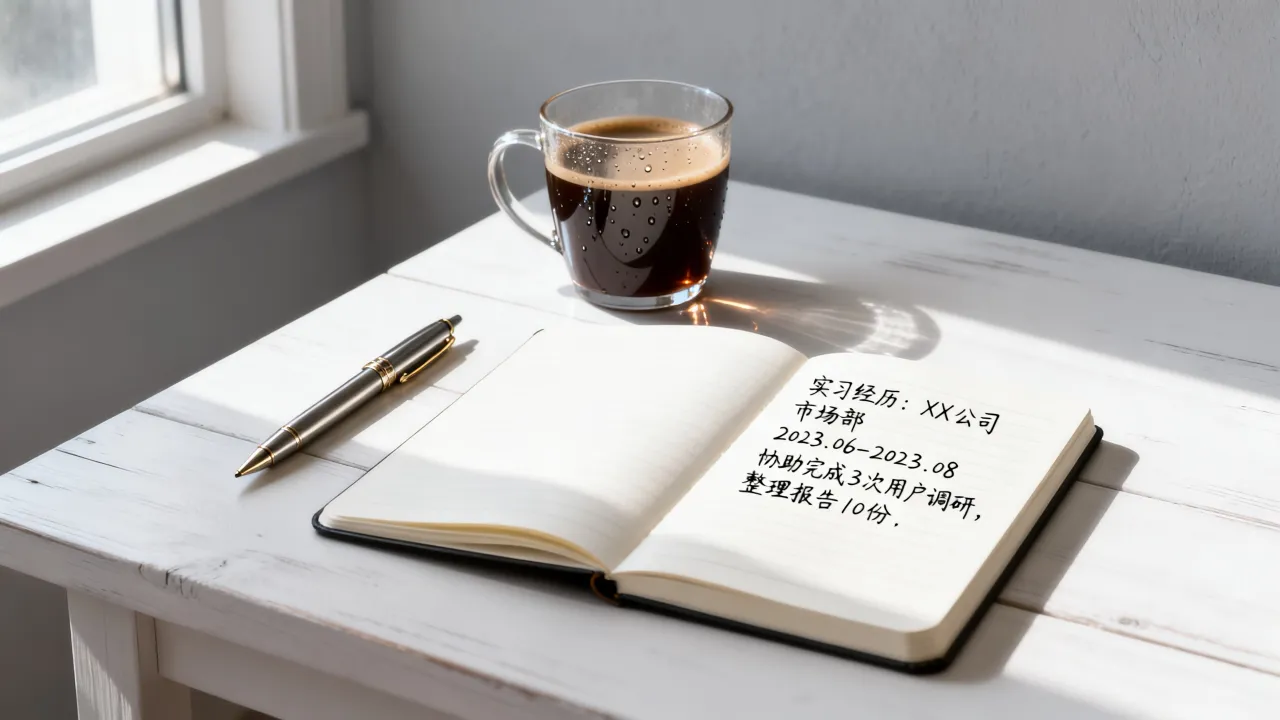 实习经历：XX公司
市场部
2023.06-2023.08
协助完成3次用户调研，
整理报告10份.